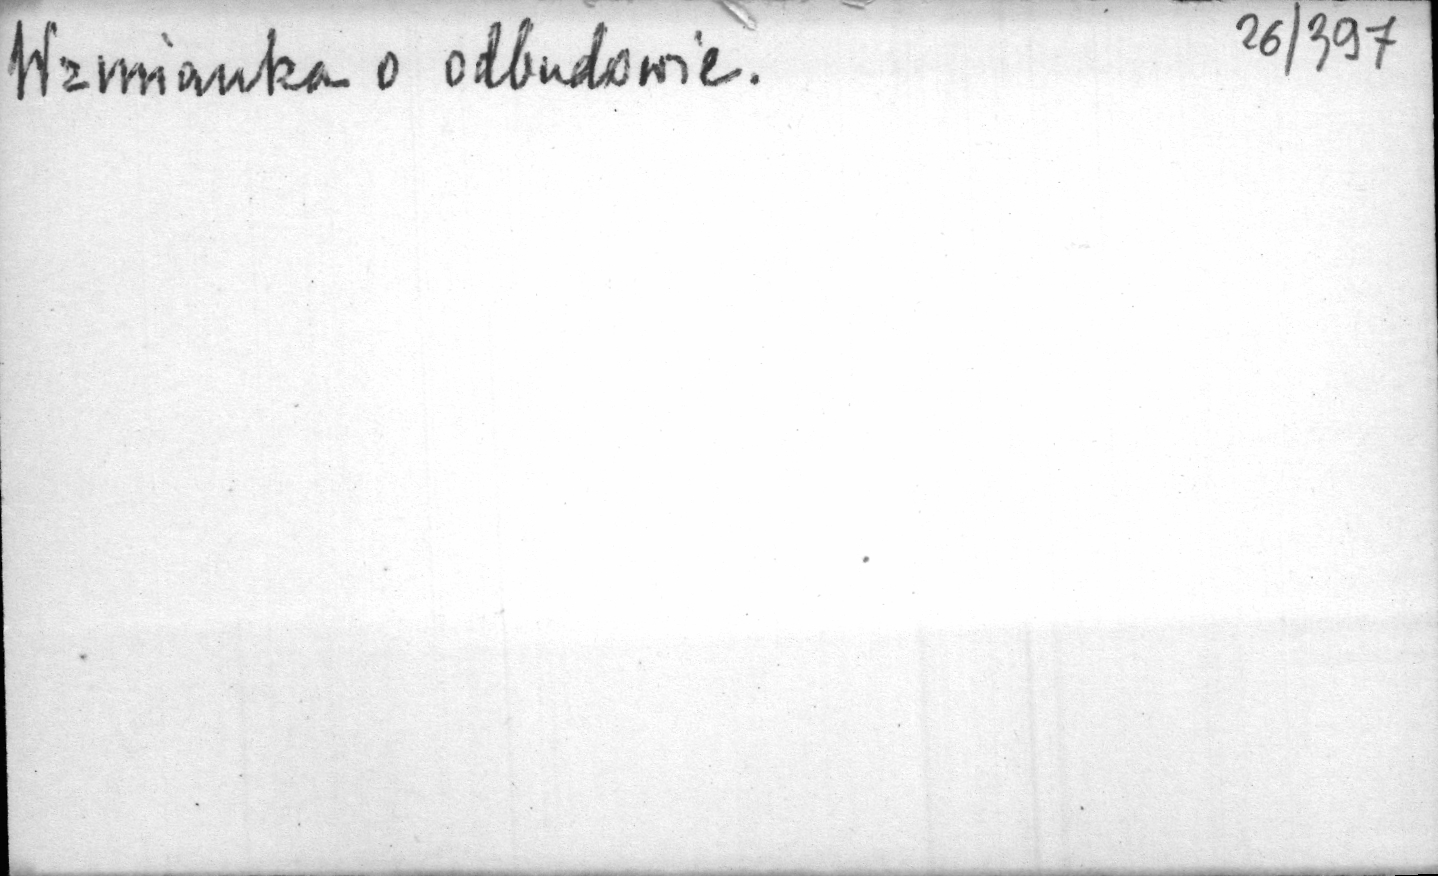 Wzmianka o odbudowie.
26/397